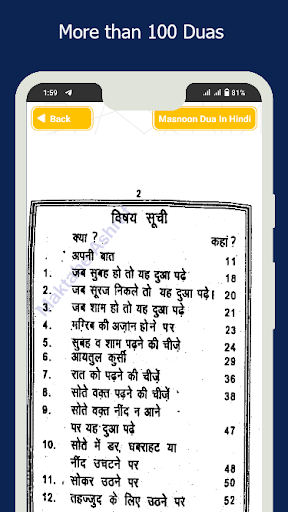 More than 100 Duas
1:59
81%
Back
Masnoon Dua In Hindi
2
विषय सूची
क्या ? कहां ?
. अपनी बात 11
1. जब सुबह हो तो यह दुआ पढ़े 18
2. जब सूरज निकले तो यह दुआ पढ़े। 20
3. जब शाम हो तो यह दुआ पढ़े 20
4. मग़्रिब की अज़ान होने पर 23
5. सुबह व शाम पढ़ने की चीज़ें 24
6. आयतुल कुर्सी 29
7. रात को पढ़ने की चीजें 36
8. सोते वक़्त पढ़ने की चीज़ें 38
9. सोते वक़्त नींद न आने
पर यह दुआ पढ़े 47
10. सोते में डर, घबराहट या
नींद उचटने पर 48
11. सोकर उठने पर 50
12. तहज्जुद के लिए उठने पर 52